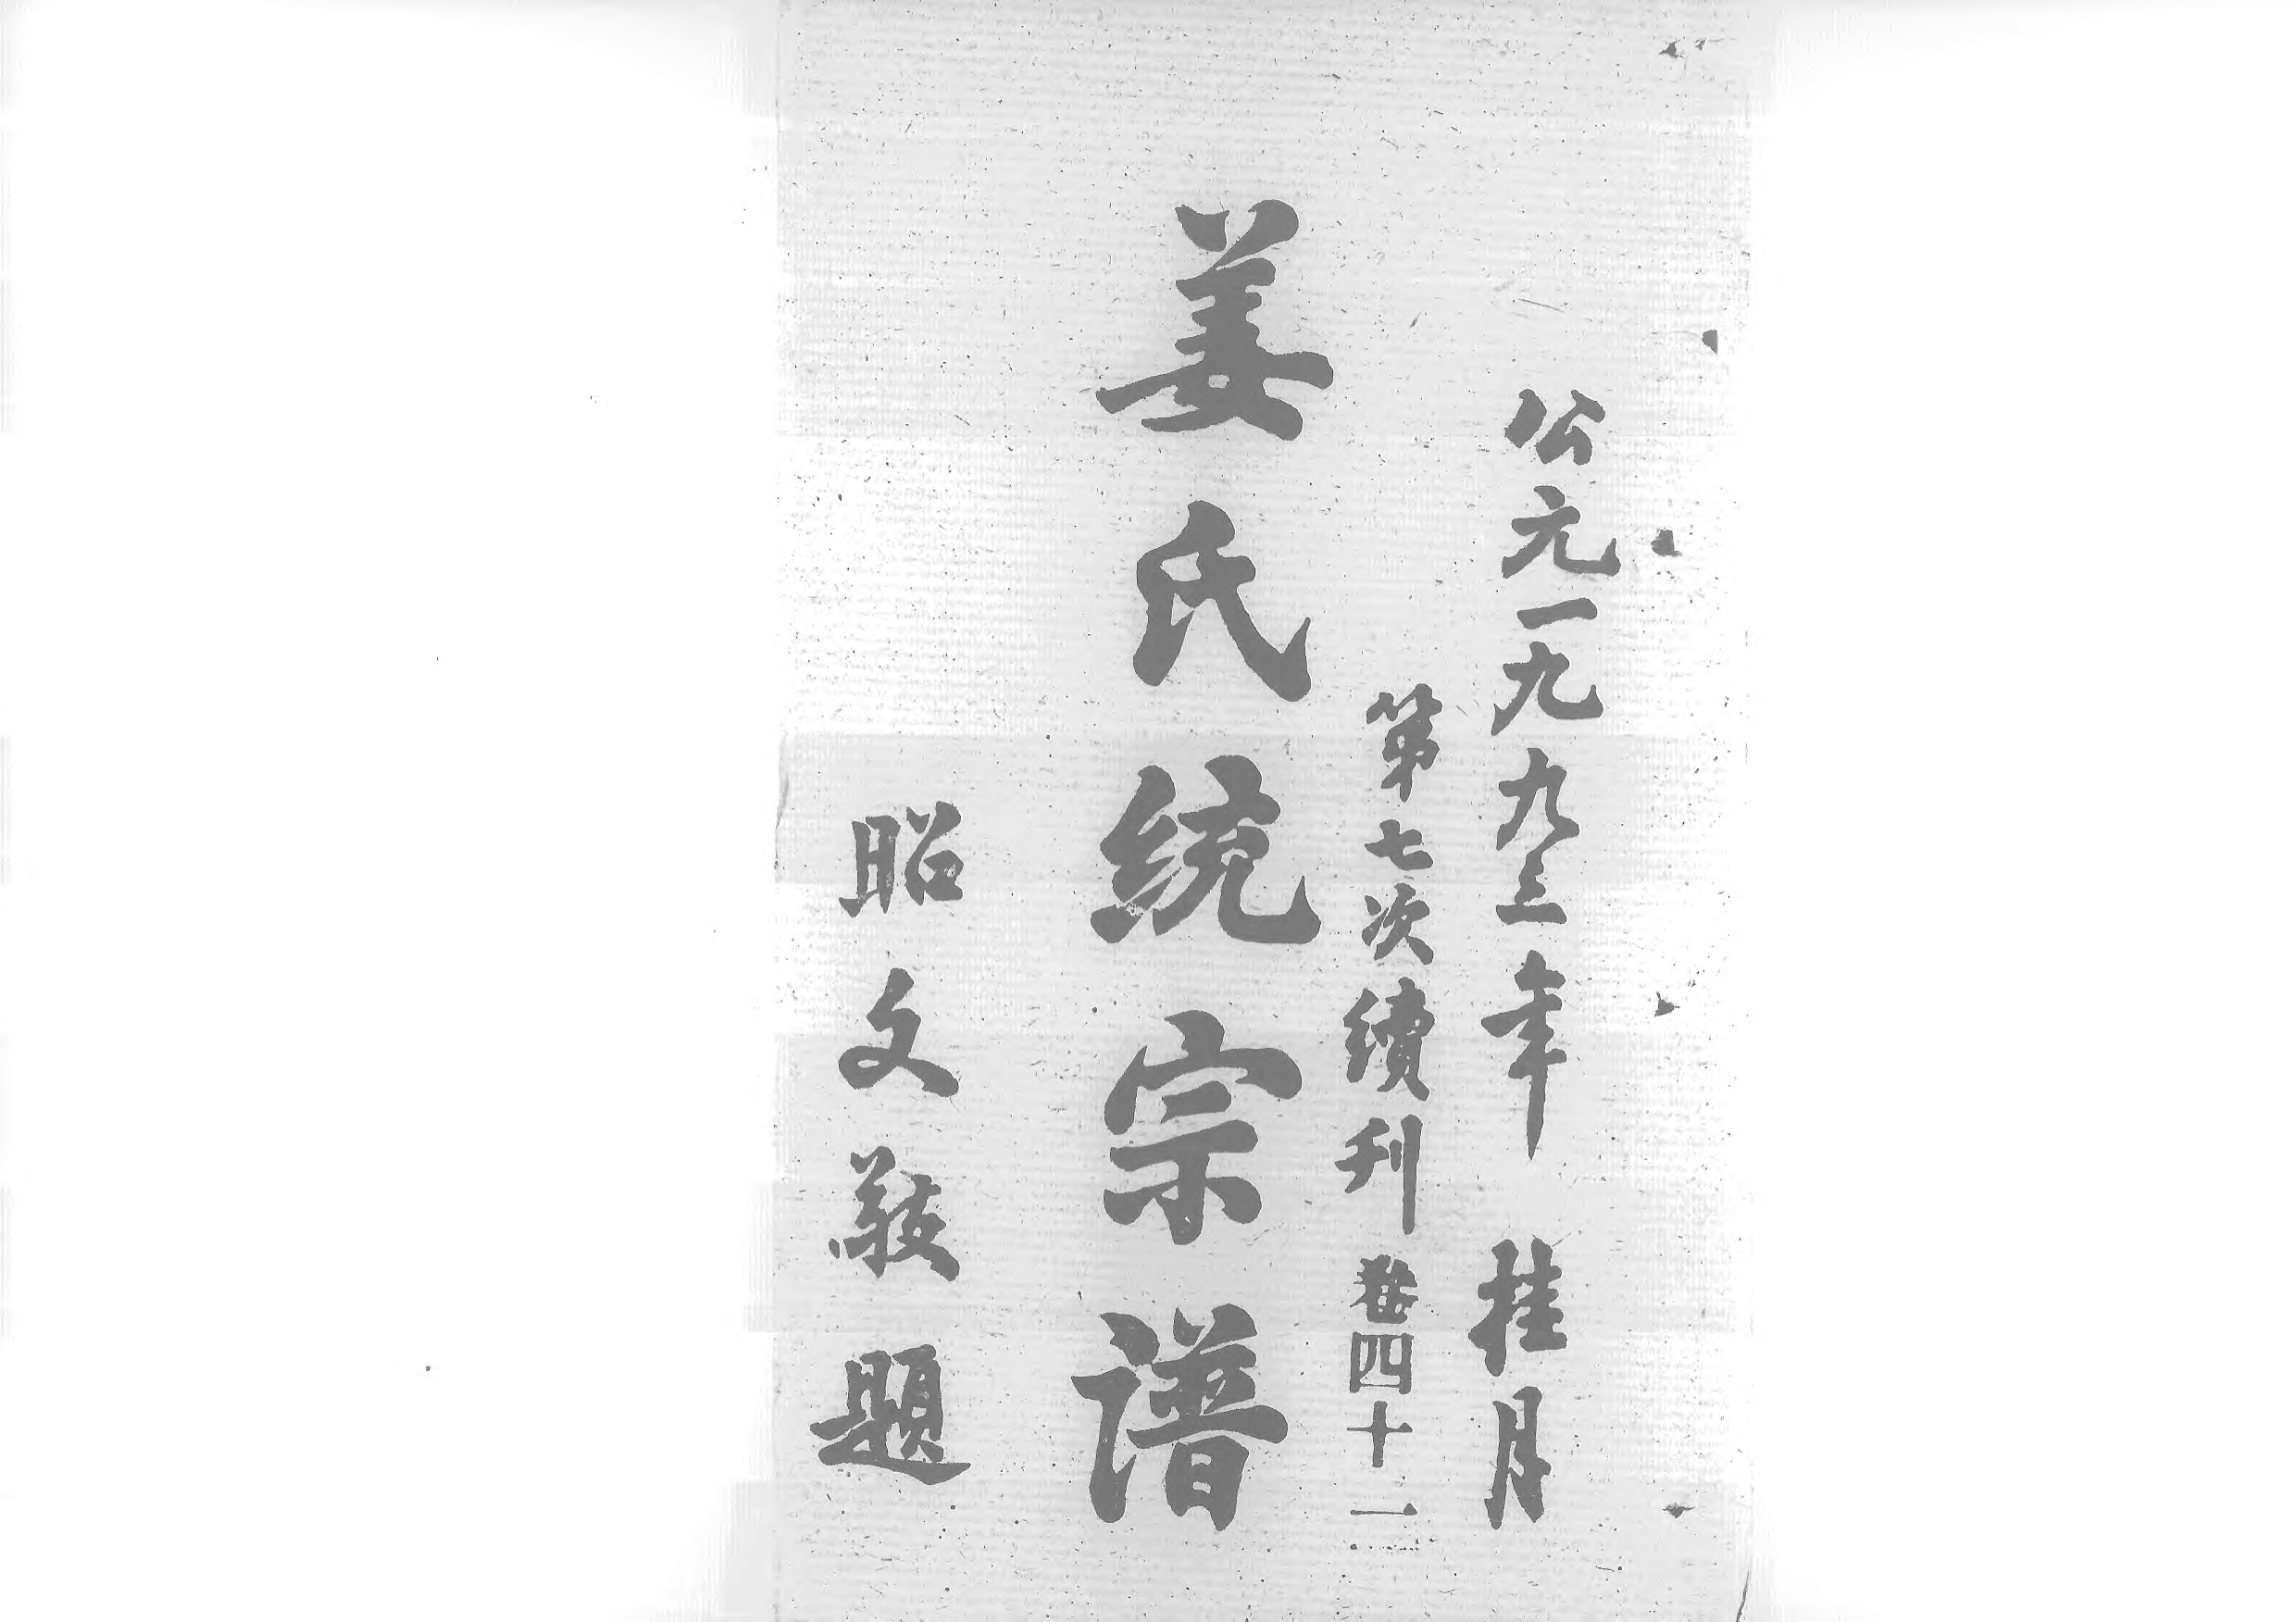 公元一九九三年 桂月
第七次續刊 卷四十一
姜氏统宗谱
昭文敬題